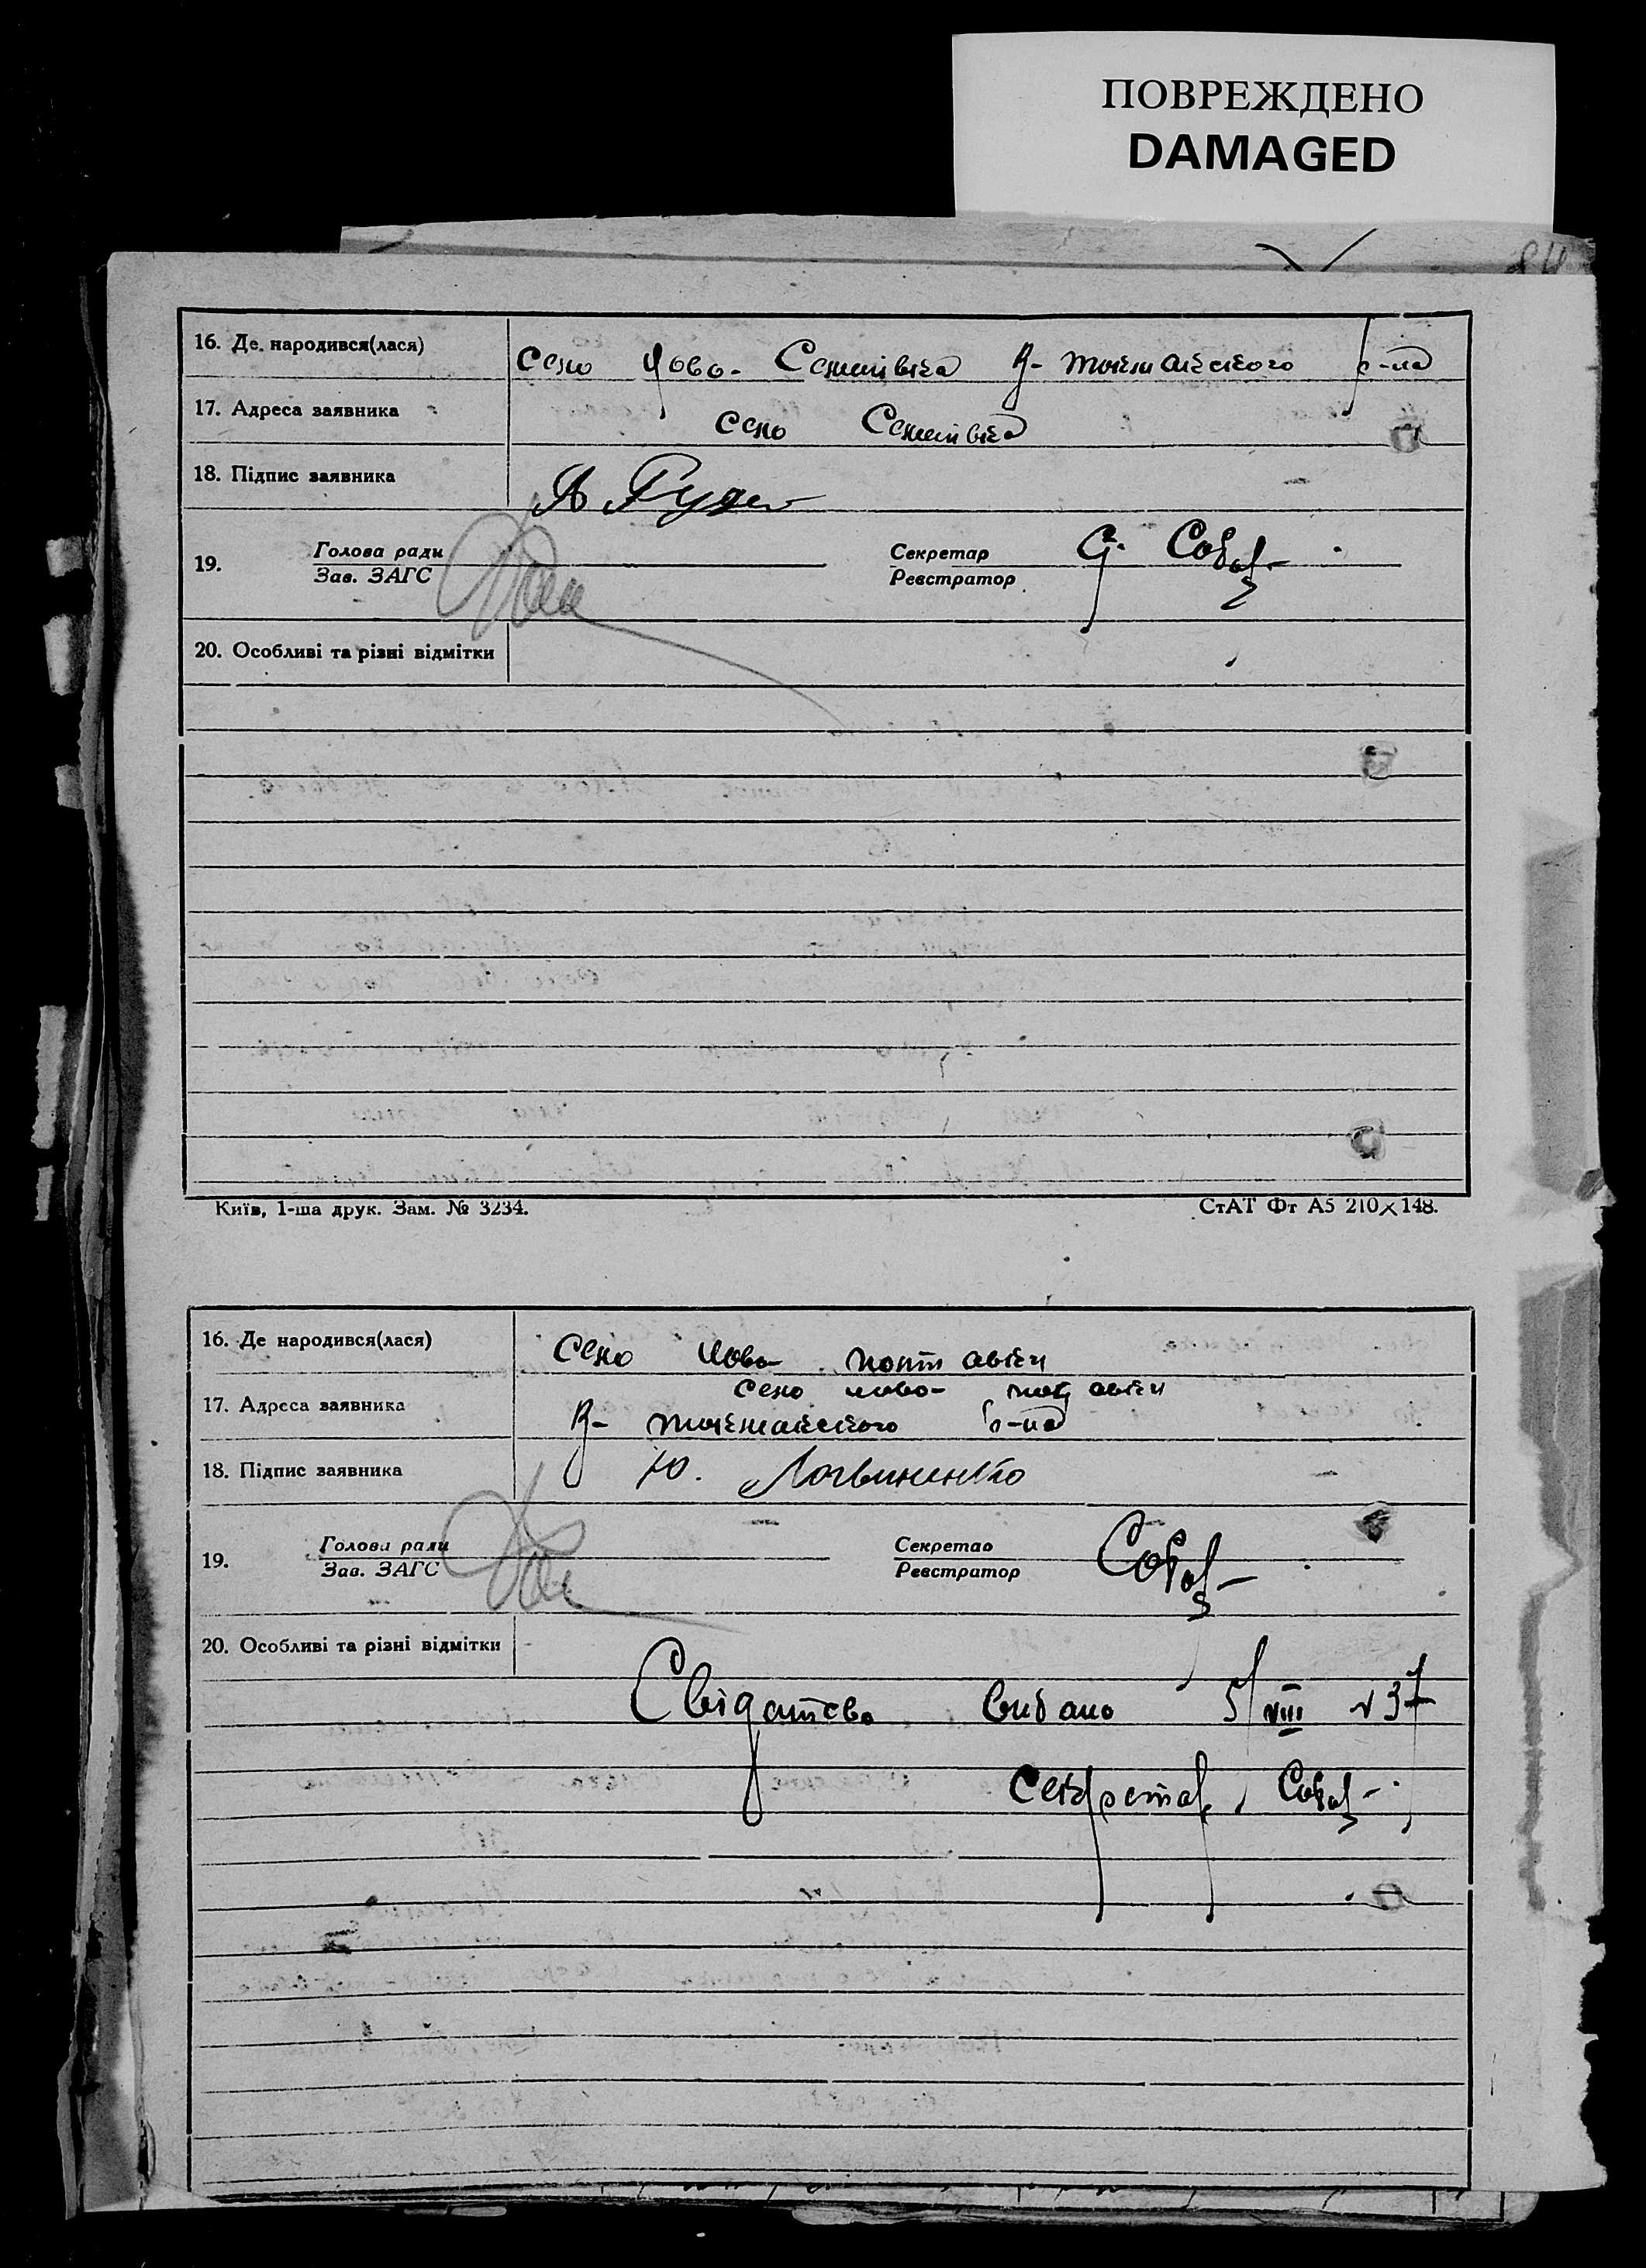 ПОВРЕЖДЕНО
DAMAGED
84
16. Де народився(лася) село Ново- Семенівка В- Токмакського р-на
17. Адреса заявника село Семенівка
18. Підпис заявника А.
19. Голова ради Секретар
Зав. ЗАГС Реєстратор
20. Особливі та різні відмітки
Київ, 1-ша друк. Зам. № 3234. СтАТ Фт А5 210×148.
16. Де народився(лася) село Ново полтавки
село ново- полтавки
17. Адреса заявника В- Токмакського р-на
18. Підпис заявника Ю. Логвиненко
19. Голова ради Секретар
Зав. ЗАГС Реєстратор
20. Особливі та різні відмітки
Свідатсво видано 5/VIII 37
Секретар